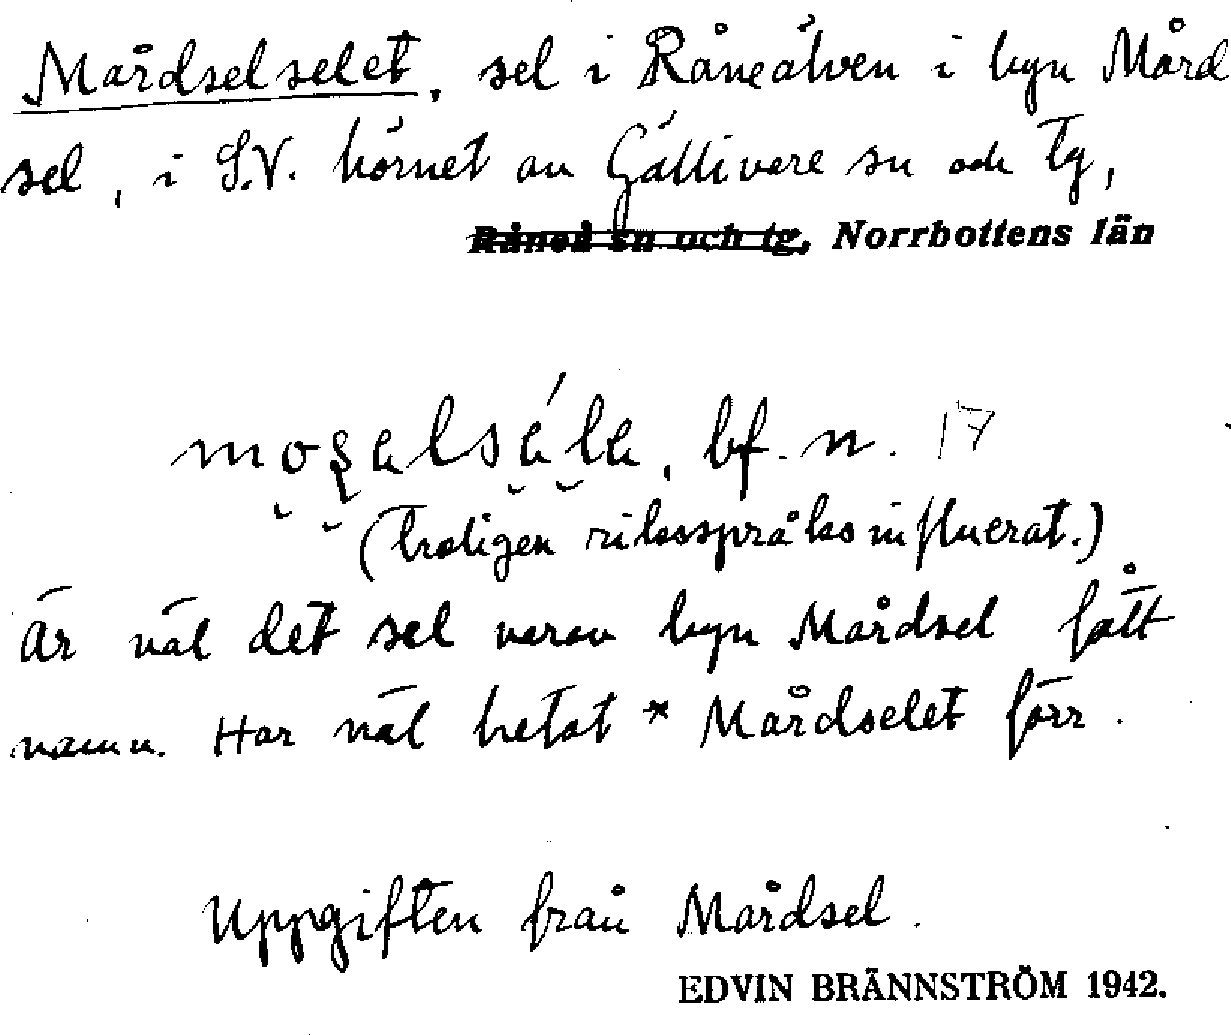 Mårdselselet, sel i Råneälven i byn Mård
sel, i S.V. hörnet av Gällivare sn och tg,
Råneå sn och tg, Norrbottens län
bf. n. 17
(Troligen riksspråksinfluerat.)
Är väl det sel varav byn Mårdsel fått
namn. Har väl hetat * Mårdselet förr.
Uppgiften från Mårdsel.
EDVIN BRÄNNSTRÖM 1942.